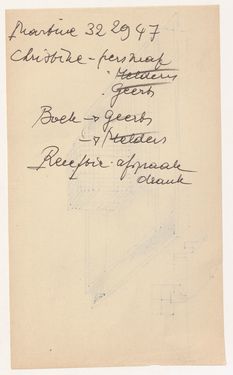 Martine 32 29 47
Christine - persmap
Helders
Geerts
Boek → Geerts
→ Helders
Receptie - afspraak
drank